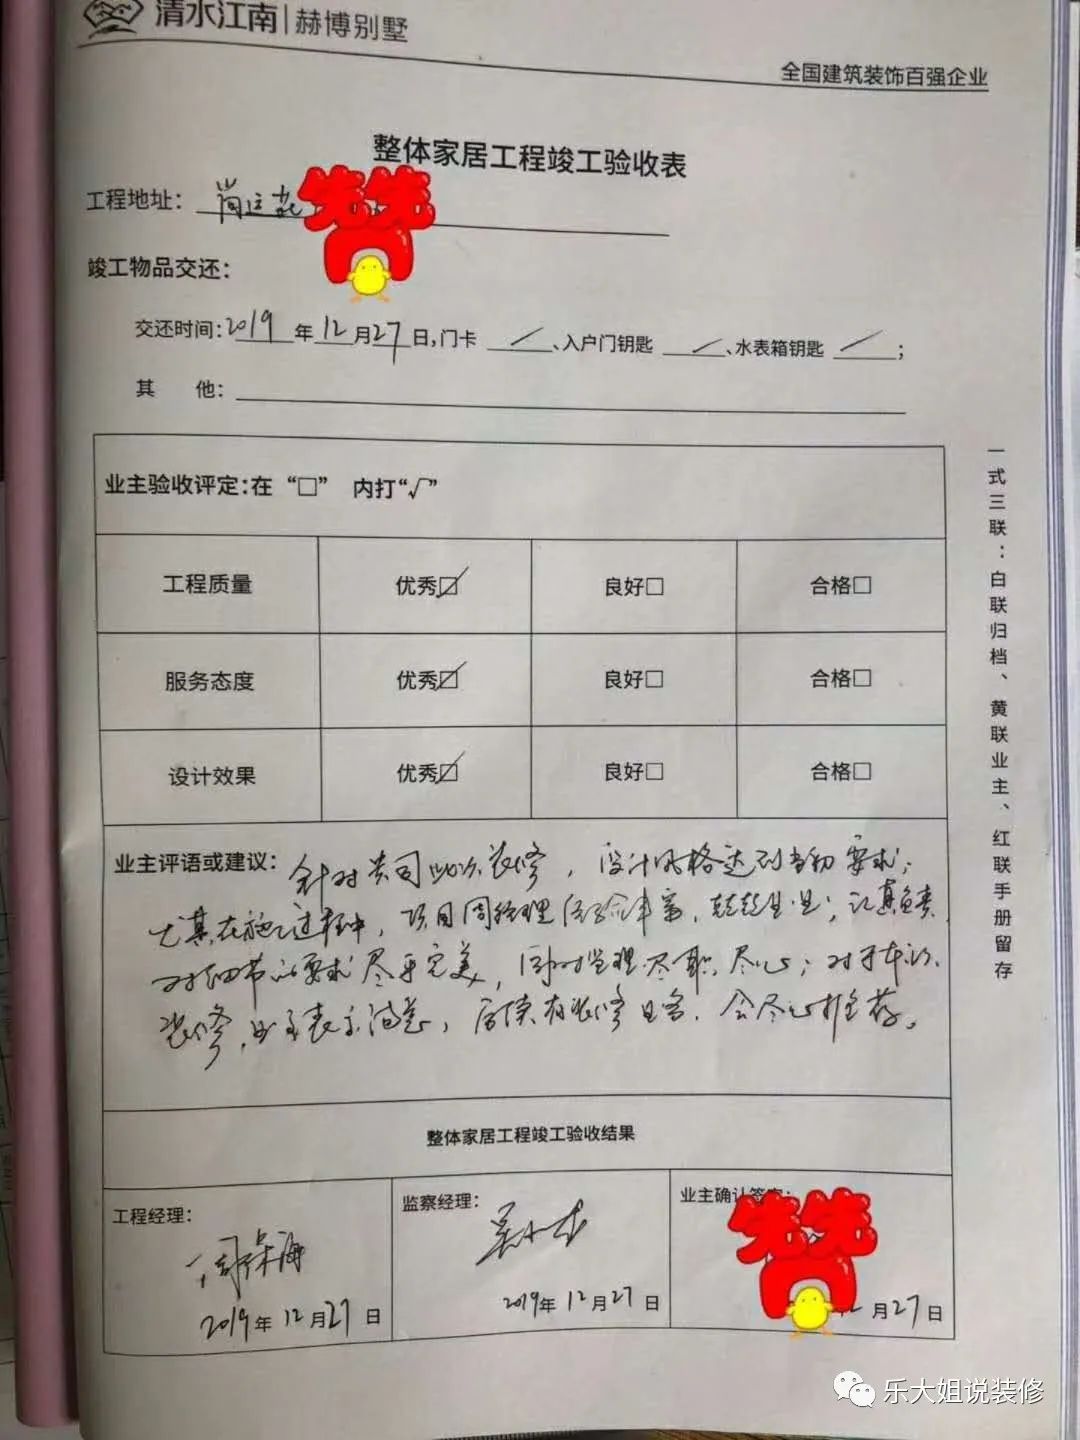 清水江南|赫博别墅
全国建筑装饰百强企业
整体家居工程竣工验收表
工程地址：尚
竣工物品交还：
交还时间：2019年12月27日，门卡 、入户门钥匙 、水表箱钥匙 ；
其 他：
业主验收评定：在“□” 内打“√”
工程质量 优秀☑ 良好□ 合格□
服务态度 优秀☑ 良好□ 合格□
设计效果 优秀☑ 良好□ 合格□
业主评语或建议：针对贵司此次装修，设计风格达到当初要求；
尤其在施工过程中，项目周经理经验丰富，兢兢业业；认真负责
对细节的要求尽乎完美，同时监理尽职、尽心；对于本次
装修，业主表示满意，后续有装修业务，会尽心推荐。
整体家居工程竣工验收结果
工程经理：
周深海
2019年12月27日
监察经理：
2019年12月27日
业主确认签字：
月27日
一式三联：白联归档、黄联业主、红联手册留存
乐大姐说装修